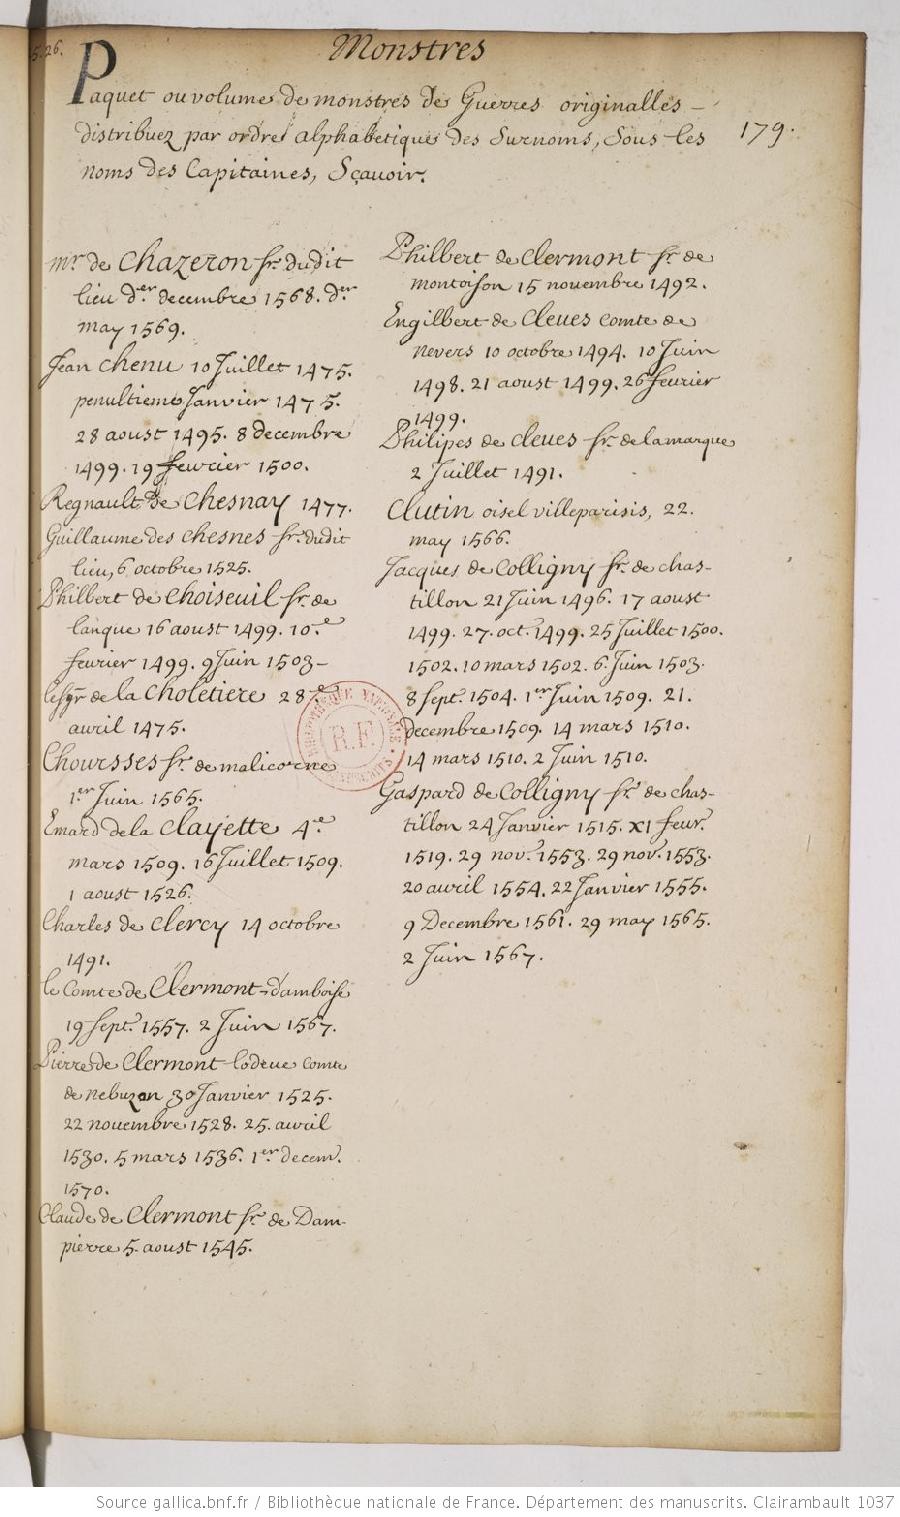 5.26.
Monstres
Paquet ou volume de monstres de Guerres originalles -
distribuez par ordre alphabetique des Surnoms, Sous les
noms des Capitaines, Sçavoir.
179.
mr. de Chazeron sr. dudit
lieu der decembre 1568. der
may 1569.
Jean Chenu 10 Juillet 1475.
penultieme Janvier 1475.
28 aoust 1495. 8 decembre
1499. 19 fevrier 1500.
Regnault de Chesnay 1477.
Guillaume des chesnes sr. dudit
lieu, 6 octobre 1525.
Philbert de Choiseuil sr. de
lanque 16 aoust 1499. 10.e
fevrier 1499. 9 Juin 1503 -
le sgr de la Choletiere 28.e
avril 1475.
Choursses sr. de malicorne
1.er Juin 1565.
Emard de la Clayette 4.e
mars 1509. 16 Juillet 1509.
1 aoust 1526.
Charles de Clercy 14 octobre
1491.
le Comte de Clermont-d'amboise
19 Sept. 1557. 2 Juin 1567.
Pierre de Clermont lodeve comte
de Nebuzan 30 Janvier 1525.
22 novembre 1528. 25. avril
1530. 5 mars 1536. 1.er decem.
1570.
Claude de Clermont sr. de Dam-
pierre 5. aoust 1545.
Philbert de Clermont sr. de
montoison 15 novembre 1492.
Engilbert de Cleves comte de
Nevers 10 octobre 1494. 10 Juin
1498. 21 aoust 1499. 26 fevrier
1499.
Philipes de cleves sr. de la marque
2 Juillet 1491.
Clutin oisel villeparisis, 22.
may 1566.
Jacques de Colligny sr. de chas-
tillon 21 Juin 1496. 17 aoust
1499. 27. oct. 1499. 25 Juillet 1500.
1502. 10 mars 1502. 6. Juin 1503.
8 Sept. 1504. 1er Juin 1509. 21.
decembre 1509. 14 mars 1510.
14 mars 1510. 2 Juin 1510.
Gaspard de Colligny sr. de chas-
tillon 24 Janvier 1515. XI fevr.
1519. 29 nov. 1553. 29 nov. 1553.
20 avril 1554. 22 Janvier 1555.
9 Decembre 1561. 29 may 1565.
2 Juin 1567.
R.F.
Source gallica.bnf.fr / Bibliothèque nationale de France. Département des manuscrits. Clairambault 1037